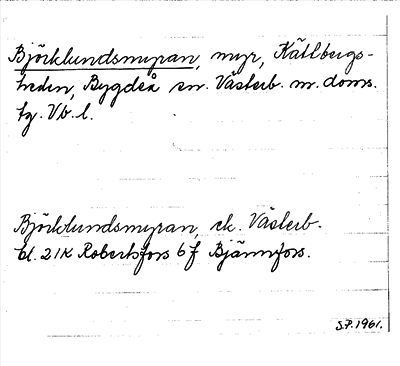 Björklundsmyran, myr, Kåtlbergs-
heden, Bygdeå sn. Västerb. m. doms.
fg. Vb. l.
Björklundsmyran, ek. Västerb.
bl. 21K Robertsfors 6f Bjännfors.
S.F. 1961.